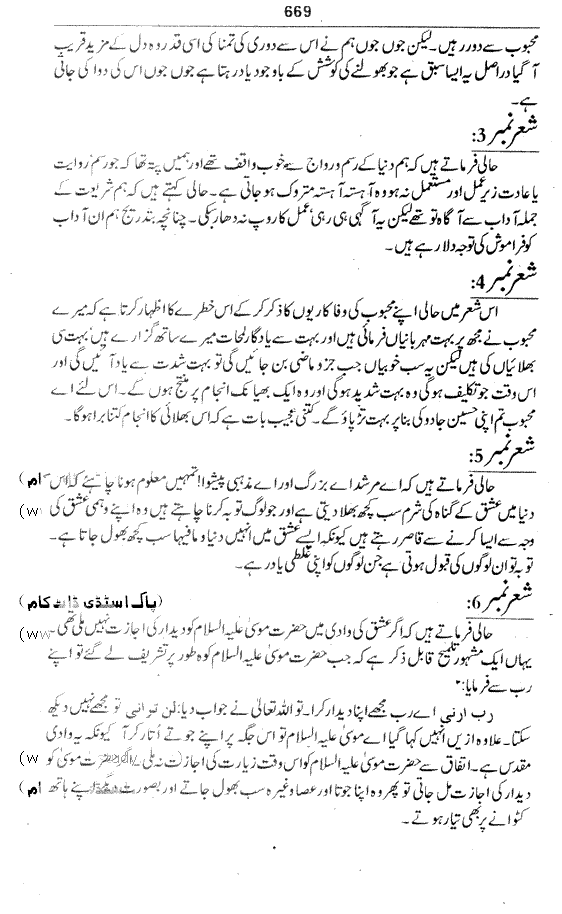 669
محبوب سے دور رہیں۔ لیکن جوں جوں ہم نے اس سے دوری کی تمنا کی اسی قدر وہ دل کے مزید قریب
آ گیا دراصل یہ ایسا سبق ہے جو بھولنے کی کوشش کے باوجود یاد رہتا ہے جوں جوں اس کی دوا کی جاتی
ہے۔
شعر نمبر 3:
حالی فرماتے ہیں کہ ہم دنیا کے رسم و رواج سے خوب واقف تھے اور ہمیں پتہ تھا کہ جو رسم روایت
یا عادت زیر عمل اور مستعمل نہ ہو وہ آہستہ آہستہ متروک ہو جاتی ہے۔ حالی کہتے ہیں کہ ہم شریعت کے
جملہ آداب سے آگاہ تو تھے لیکن یہ آگہی ہی رہی عمل کا روپ نہ دھار سکی۔ چنانچہ بتدریج ہم ان آداب
کو فراموش کی توجہ دلا رہے ہیں۔
شعر نمبر 4:
اس شعر میں حالی اپنے محبوب کی وفا کاریوں کا ذکر کر کے اس خطرے کا اظہار کرتا ہے کہ میرے
محبوب نے مجھ پر بہت مہربانیاں فرمائی ہیں اور بہت سے یادگار لمحات میرے ساتھ گزارے ہیں بہت سی
بھلائیاں کی ہیں لیکن یہ سب خوبیاں جب جزو ماضی بن جائیں گی تو بہت شدت سے یاد آئیں گی اور
اس وقت جو تکلیف ہو گی وہ بہت شدید ہو گی اور وہ ایک بھیانک انجام پر منتج ہوں گے۔ اس لئے اے
محبوب تم اپنی حسین جادو کی بنا پر بہت تڑپاؤ گے۔ کتنی عجیب بات ہے کہ اس بھلائی کا انجام کتنا برا ہو گا۔
شعر نمبر 5:
حالی فرماتے ہیں کہ اے مرشد اے بزرگ اور اے مذہبی پیشوا! تمہیں معلوم ہونا چاہئے کہ اس ام)
دنیا میں عشق کے گناہ کی شرم سب کچھ بھلا دیتی ہے اور جو لوگ توبہ کرنا چاہتے ہیں وہ اپنے وہمی عشق کی (w
وجہ سے ایسا کرنے سے قاصر رہتے ہیں کیونکہ ایسے عشق میں انہیں دنیا و مافیہا سب کچھ بھول جاتا ہے۔
توبہ تو ان لوگوں کی قبول ہوتی ہے جن لوگوں کو اپنی غلطی یاد رہے۔
شعر نمبر 6: (پاک اسٹڈی ڈاٹ کام)
حالی فرماتے ہیں کہ اگر عشق کی وادی میں حضرت موسیٰ علیہ السلام کو دیدار کی اجازت نہیں ملی تھی۔ (ww
یہاں ایک مشہور تلمیح قابل ذکر ہے کہ جب حضرت موسیٰ علیہ السلام کوہ طور پر تشریف لے گئے تو اپنے
رب سے فرمایا:
رب ارنی اے رب مجھے اپنا دیدار کرا۔ تو اللہ تعالیٰ نے جواب دیا: لن ترانی تو مجھے نہیں دیکھ
سکتا۔ علاوہ ازیں انہیں کہا گیا اے موسیٰ علیہ السلام تو اس جگہ پر اپنے جوتے اُتار کر آ کیونکہ یہ وادی
مقدس ہے۔ اتفاق سے حضرت موسیٰ علیہ السلام کو اس وقت زیارت کی اجازت نہ ملی۔ اگر حضرت موسیٰ کو (w
دیدار کی اجازت مل جاتی تو پھر وہ اپنا جوتا اور عصا وغیرہ سب بھول جاتے اور بصورت دیگر اپنے ہاتھ ام)
کٹوانے پر بھی تیار ہوتے۔